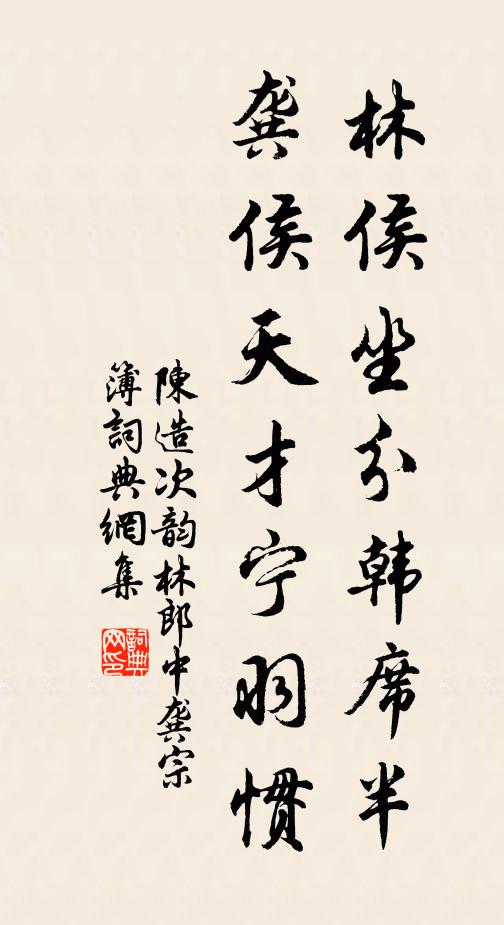 林侯坐分韩席半
龚侯天才宁羽慣
陳造次韵林郎中龚宗
簿詞典網集
詞典网印